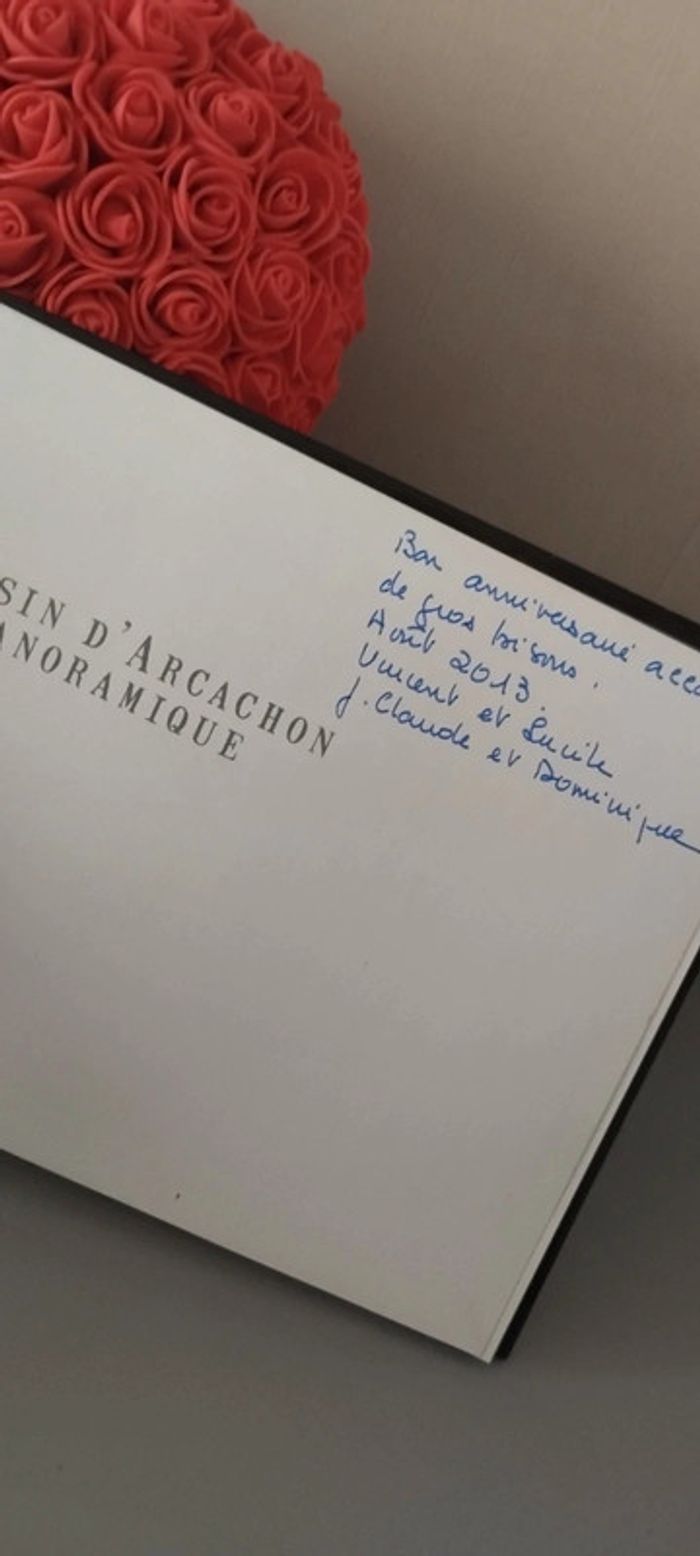 SIN D'ARCACHON
ANORAMIQUE
Bon anniversaire acco
de gros bisous.
Août 2013.
Vincent et Lucile
J. Claude et Dominique